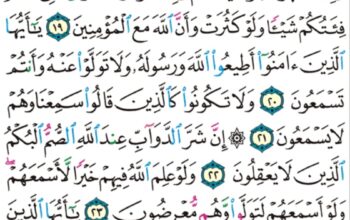 فِئَتُكُمْ شَيْـًٔا وَلَوْ كَثُرَتْ وَأَنَّ ٱللَّهَ مَعَ ٱلْمُؤْمِنِينَ ١٩ يَـٰٓأَيُّهَا
ٱلَّذِينَ ءَامَنُوٓا۟ أَطِيعُوا۟ ٱللَّهَ وَرَسُولَهُۥ وَلَا تَوَلَّوْا۟ عَنْهُ وَأَنتُمْ
تَسْمَعُونَ ٢٠ وَلَا تَكُونُوا۟ كَٱلَّذِينَ قَالُوا۟ سَمِعْنَا وَهُمْ
لَا يَسْمَعُونَ ٢١ ۞ إِنَّ شَرَّ ٱلدَّوَآبِّ عِندَ ٱللَّهِ ٱلصُّمُّ ٱلْبُكْمُ
ٱلَّذِينَ لَا يَعْقِلُونَ ٢٢ وَلَوْ عَلِمَ ٱللَّهُ فِيهِمْ خَيْرًا لَّأَسْمَعَهُمْ ۖ
وَلَوْ أَسْمَعَهُمْ لَتَوَلَّوا۟ وَّهُم مُّعْرِضُونَ ٢٣ يَـٰٓأَيُّهَا ٱلَّذِينَ